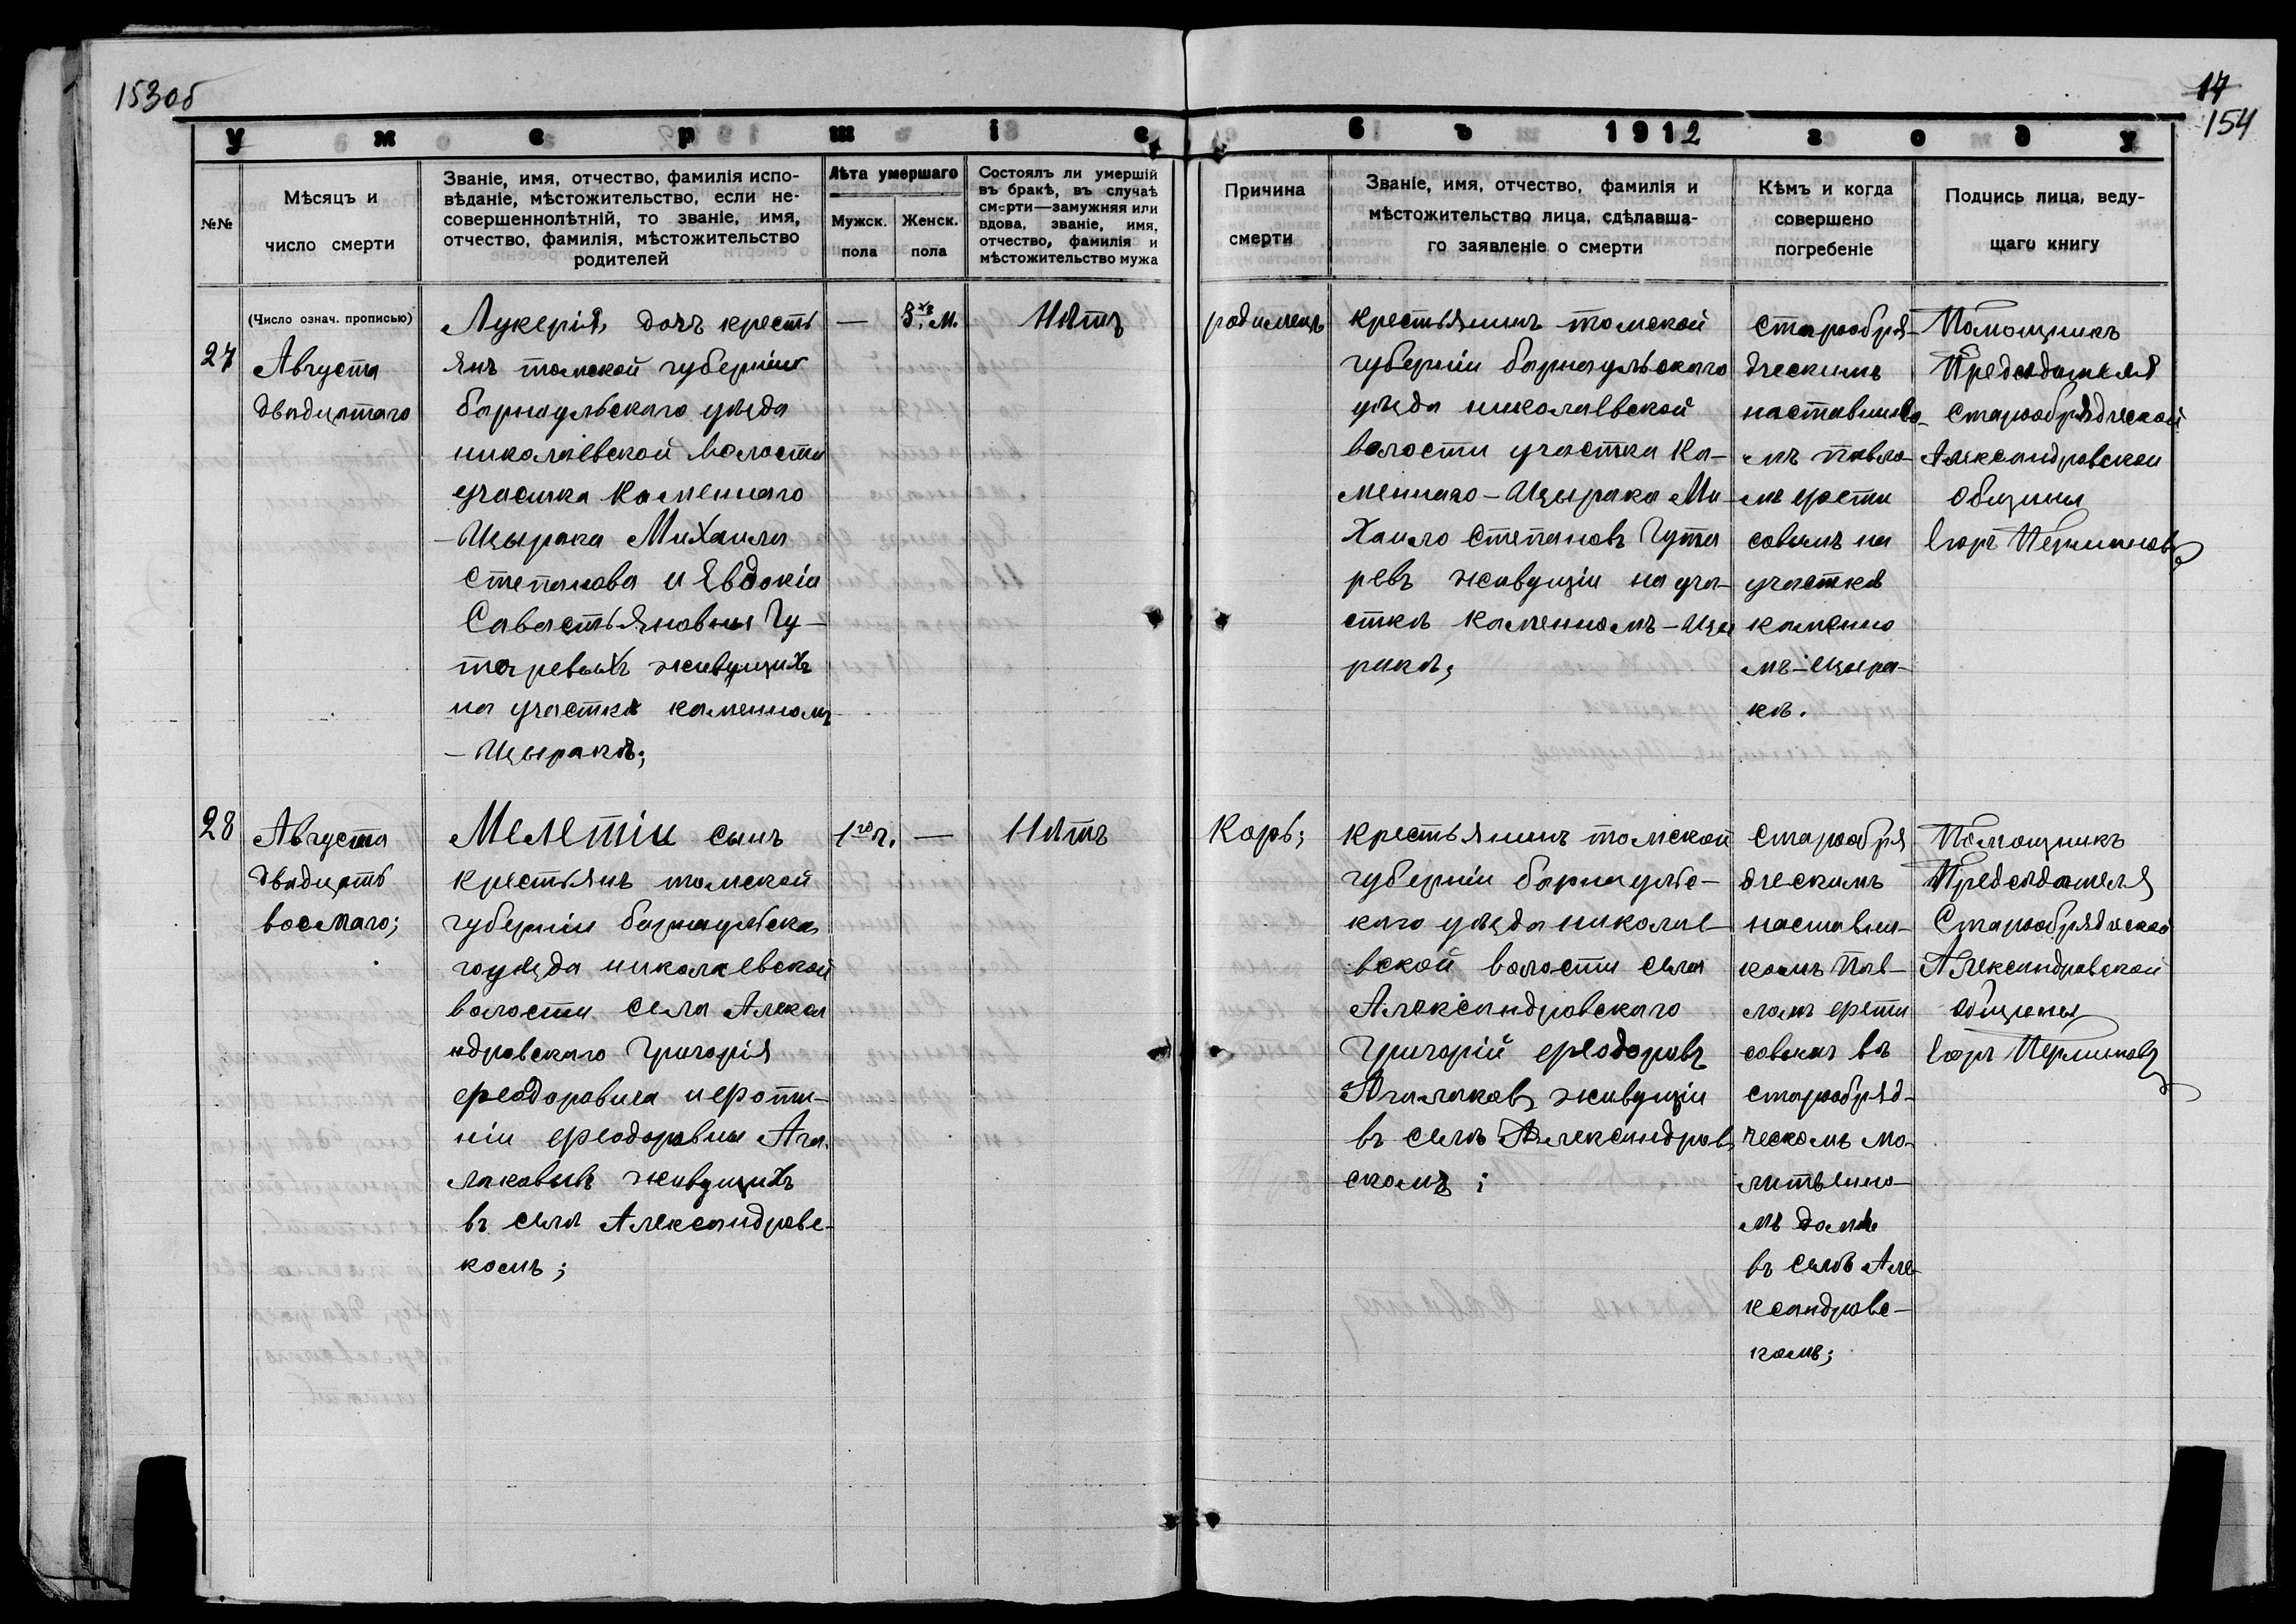 153об
17
154
Умершіе
въ 1912 году
№№
Мѣсяцъ и
число смерти
Званіе, имя, отчество, фамилія испо-
вѣданіе, мѣстожительство, если не-
совершеннолѣтній, то званіе, имя,
отчество, фамилія, мѣстожительство
родителей
Лѣта умершаго
Мужск.
пола
Женск.
пола
Состоялъ ли умершій
въ бракѣ, въ случаѣ
смерти—замужняя или
вдова, званіе, имя,
отчество, фамилія и
мѣстожительство мужа
Причина
смерти
Званіе, имя, отчество, фамилія и
мѣстожительство лица, сдѣлавша-
го заявленіе о смерти
Кѣмъ и когда
совершено
погребеніе
Подпись лица, веду-
щаго книгу
(Число означ. прописью)
27
Августа
двадцатаго
Лукерія, дочь кресть
янъ томской губерніи
барнаульскаго уѣзда
николаевской волости
участка Каменнаго
-Ицырака Михаила
степанова и Явдокіи
Савастьяновны Гу-
таревыхъ живущихъ
на участкѣ каменномъ
-Ицыракѣ;
—
8хъ м.
Нѣтъ
родимецъ
крестьянинъ томской
губерніи барнаульскаго
уѣзда николаевской
волости участка Ка-
меннаго-Ицырака Ми-
хаило степановъ Гута
ревъ живущіи на уча-
сткѣ каменномъ-Ицы
ракѣ;
старообря-
дческимъ
наставнико-
мъ павло-
мъ фети
совымъ на
участкѣ
каменно
мъ-ицыра-
кѣ.
Помощникъ
Предсѣдателя
старообрядческой
Александровской
общины
Егоръ Перминовъ
28
Августа
двадцать
восмаго;
Мелетіи сынъ
крестьянъ томской
губерніи барнаульска
гоуѣзда николаевской
волости села Алекса
ндровскаго Григорія
феодоровича ифоти-
ніи феодоровны Ага-
лаковыхъ живущихъ
въ селѣ Александровс-
комъ;
1го г.
—
Нѣтъ
Корь;
крестьянинъ томской
губерніи барнаульс-
каго уѣзда николае-
вской волости села
Александровскаго
Григорій феодоровъ
Агалаковъ живущіи
въ селѣ Александров
скомъ;
старообря
дческимъ
наставни-
комъ Пав-
ломъ фети
совымъ въ
старообряд-
ческомъ мо-
литвенно-
мъ домѣ
въ селѣ Але-
ксандровс-
комъ;
Помощникъ
Предсѣдателя
Старообрядческой
Александровской
общины
Егоръ Перминовъ